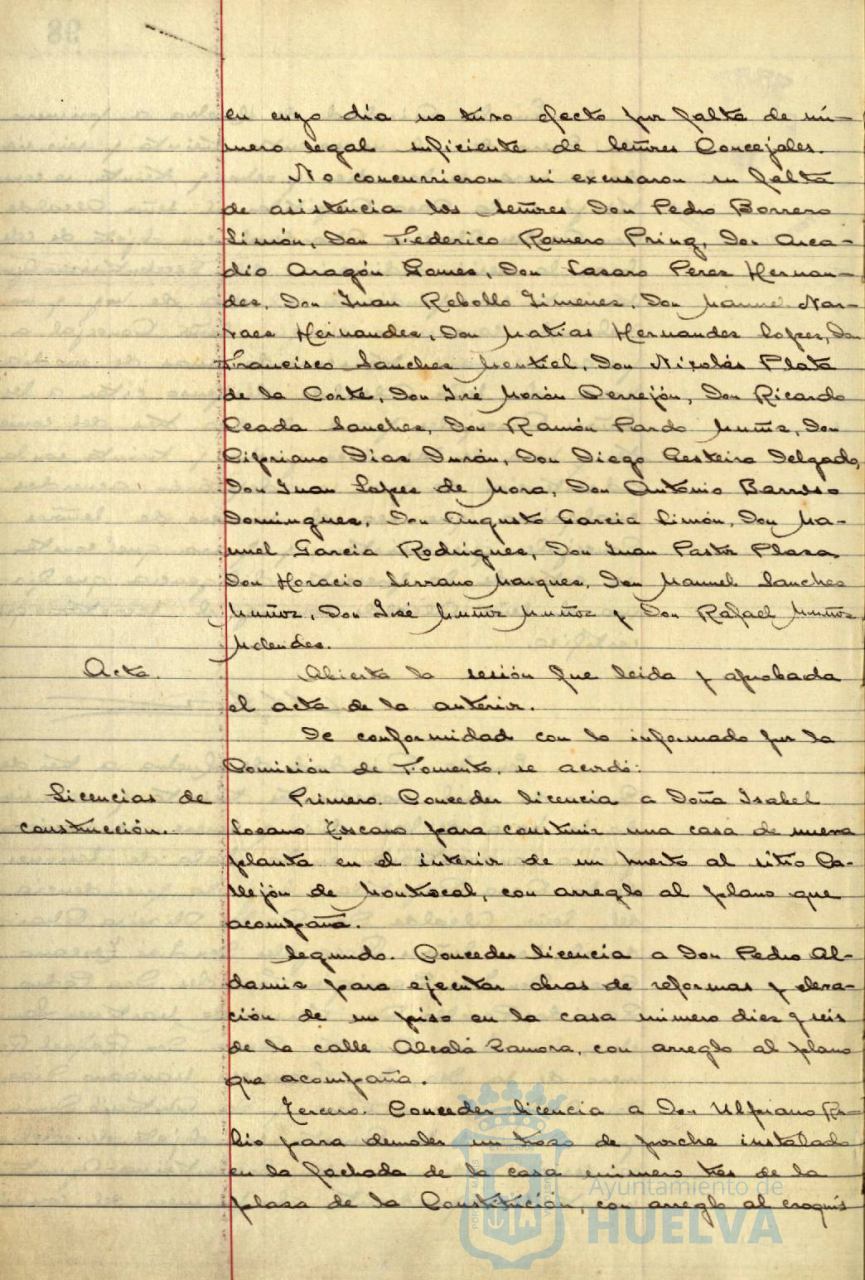 en cuyo dia no tuvo efecto por falta de nú-
mero legal suficiente de señores Concejales.
No concurrieron ni excusaron su falta
de asistencia los señores Don Pedro Borrero
Limón, Don Federico Romero Pring, Don Arca-
dio Aragón Gomes, Don Lasaro Peres Hernan-
des, Don Juan Rebollo Jimenes, Don Manuel Nar-
vaes Hernandes, Don Matias Hernandes Lopes, Don
Francisco Sanches Montiel, Don Nicolás Plata
de la Corte, Don José Morón Perrejón, Don Ricardo
Ceada Sanches, Don Ramón Pardo Muñis, Don
Cipriano Dias Durán, Don Diego Gesteira Delgado,
Don Juan Lopes de Mora, Don Antonio Barroso
Domingues, Don Augusto Garcia Limón, Don Ma-
nuel Garcia Rodrigues, Don Juan Pastor Plasa
Don Horacio Serrano Marques, Don Manuel Sanches
Muñoz, Don José Muñoz Muñoz y Don Rafael Muñoz
Melendes.
Acta.
Abierta la sesión fue leida y aprobada
el acta de la anterior.
De conformidad con lo informado por la
Comisión de Fomento, se acordó:
Licencias de
construcción.
Primero. Conceder licencia a Doña Isabel
Losano Toscano para construir una casa de nueva
planta en el interior de un huerto al sitio Ca-
llejón de Montrocal, con arreglo al plano que
acompaña.
Segundo. Conceder licencia a Don Pedro Al-
damis para ejecutar obras de reformas y eleva-
ción de un piso en la casa número dies y seis
de la calle Alcalá Zamora, con arreglo al plano
que acompaña.
Tercero. Conceder licencia a Don Ulpiano Ru-
bio para demoler un troso de porche instalado
en la fachada de la casa número tres de la
plasa de la Constitución, con arreglo al croquis
Ayuntamiento de
HUELVA